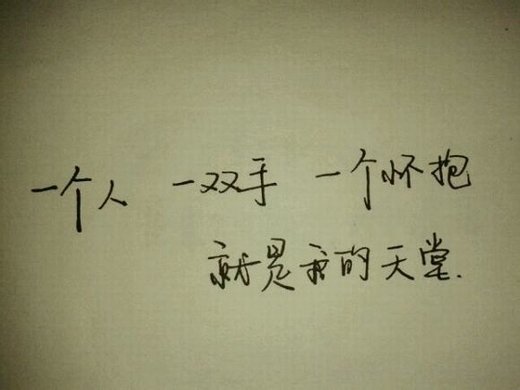 一个人 一双手 一个怀抱
就是我的天堂.